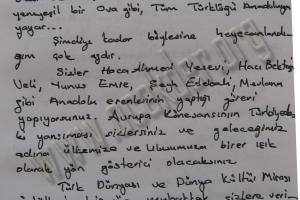 yemyeşil bir Ova gibi, Tüm Türklüğü Anadoluyu
yayar...
Şimdiye kadar böylesine heyecanlandı-
ğım çok azdır.
Sizler Hoca Ahmed Yesevi, Hacı Bektaş
Veli, Yunus Emre, Şeyh Edebali, Mevlana
gibi Anadolu erenlerinin yaptığı görevi
yapıyorsunuz. Avrupa Rönesansının Türkiyede
ki yansıması sizlersiniz ve geleceğimiz
adına ülkemize ve Ulusumuza birer ışık
olarak yön gösterici olacaksınız
Türk Dünyası ve Dünya Kültür Mirası
sizlere